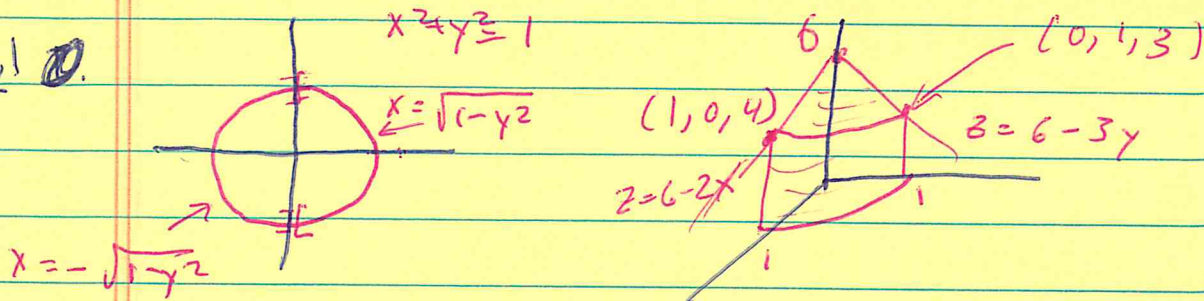 x²+y²=1
x=√1-y²
x=-√1-y²
6
(0,1,3)
(1,0,4)
z=6-3y
z=6-2x
1
1